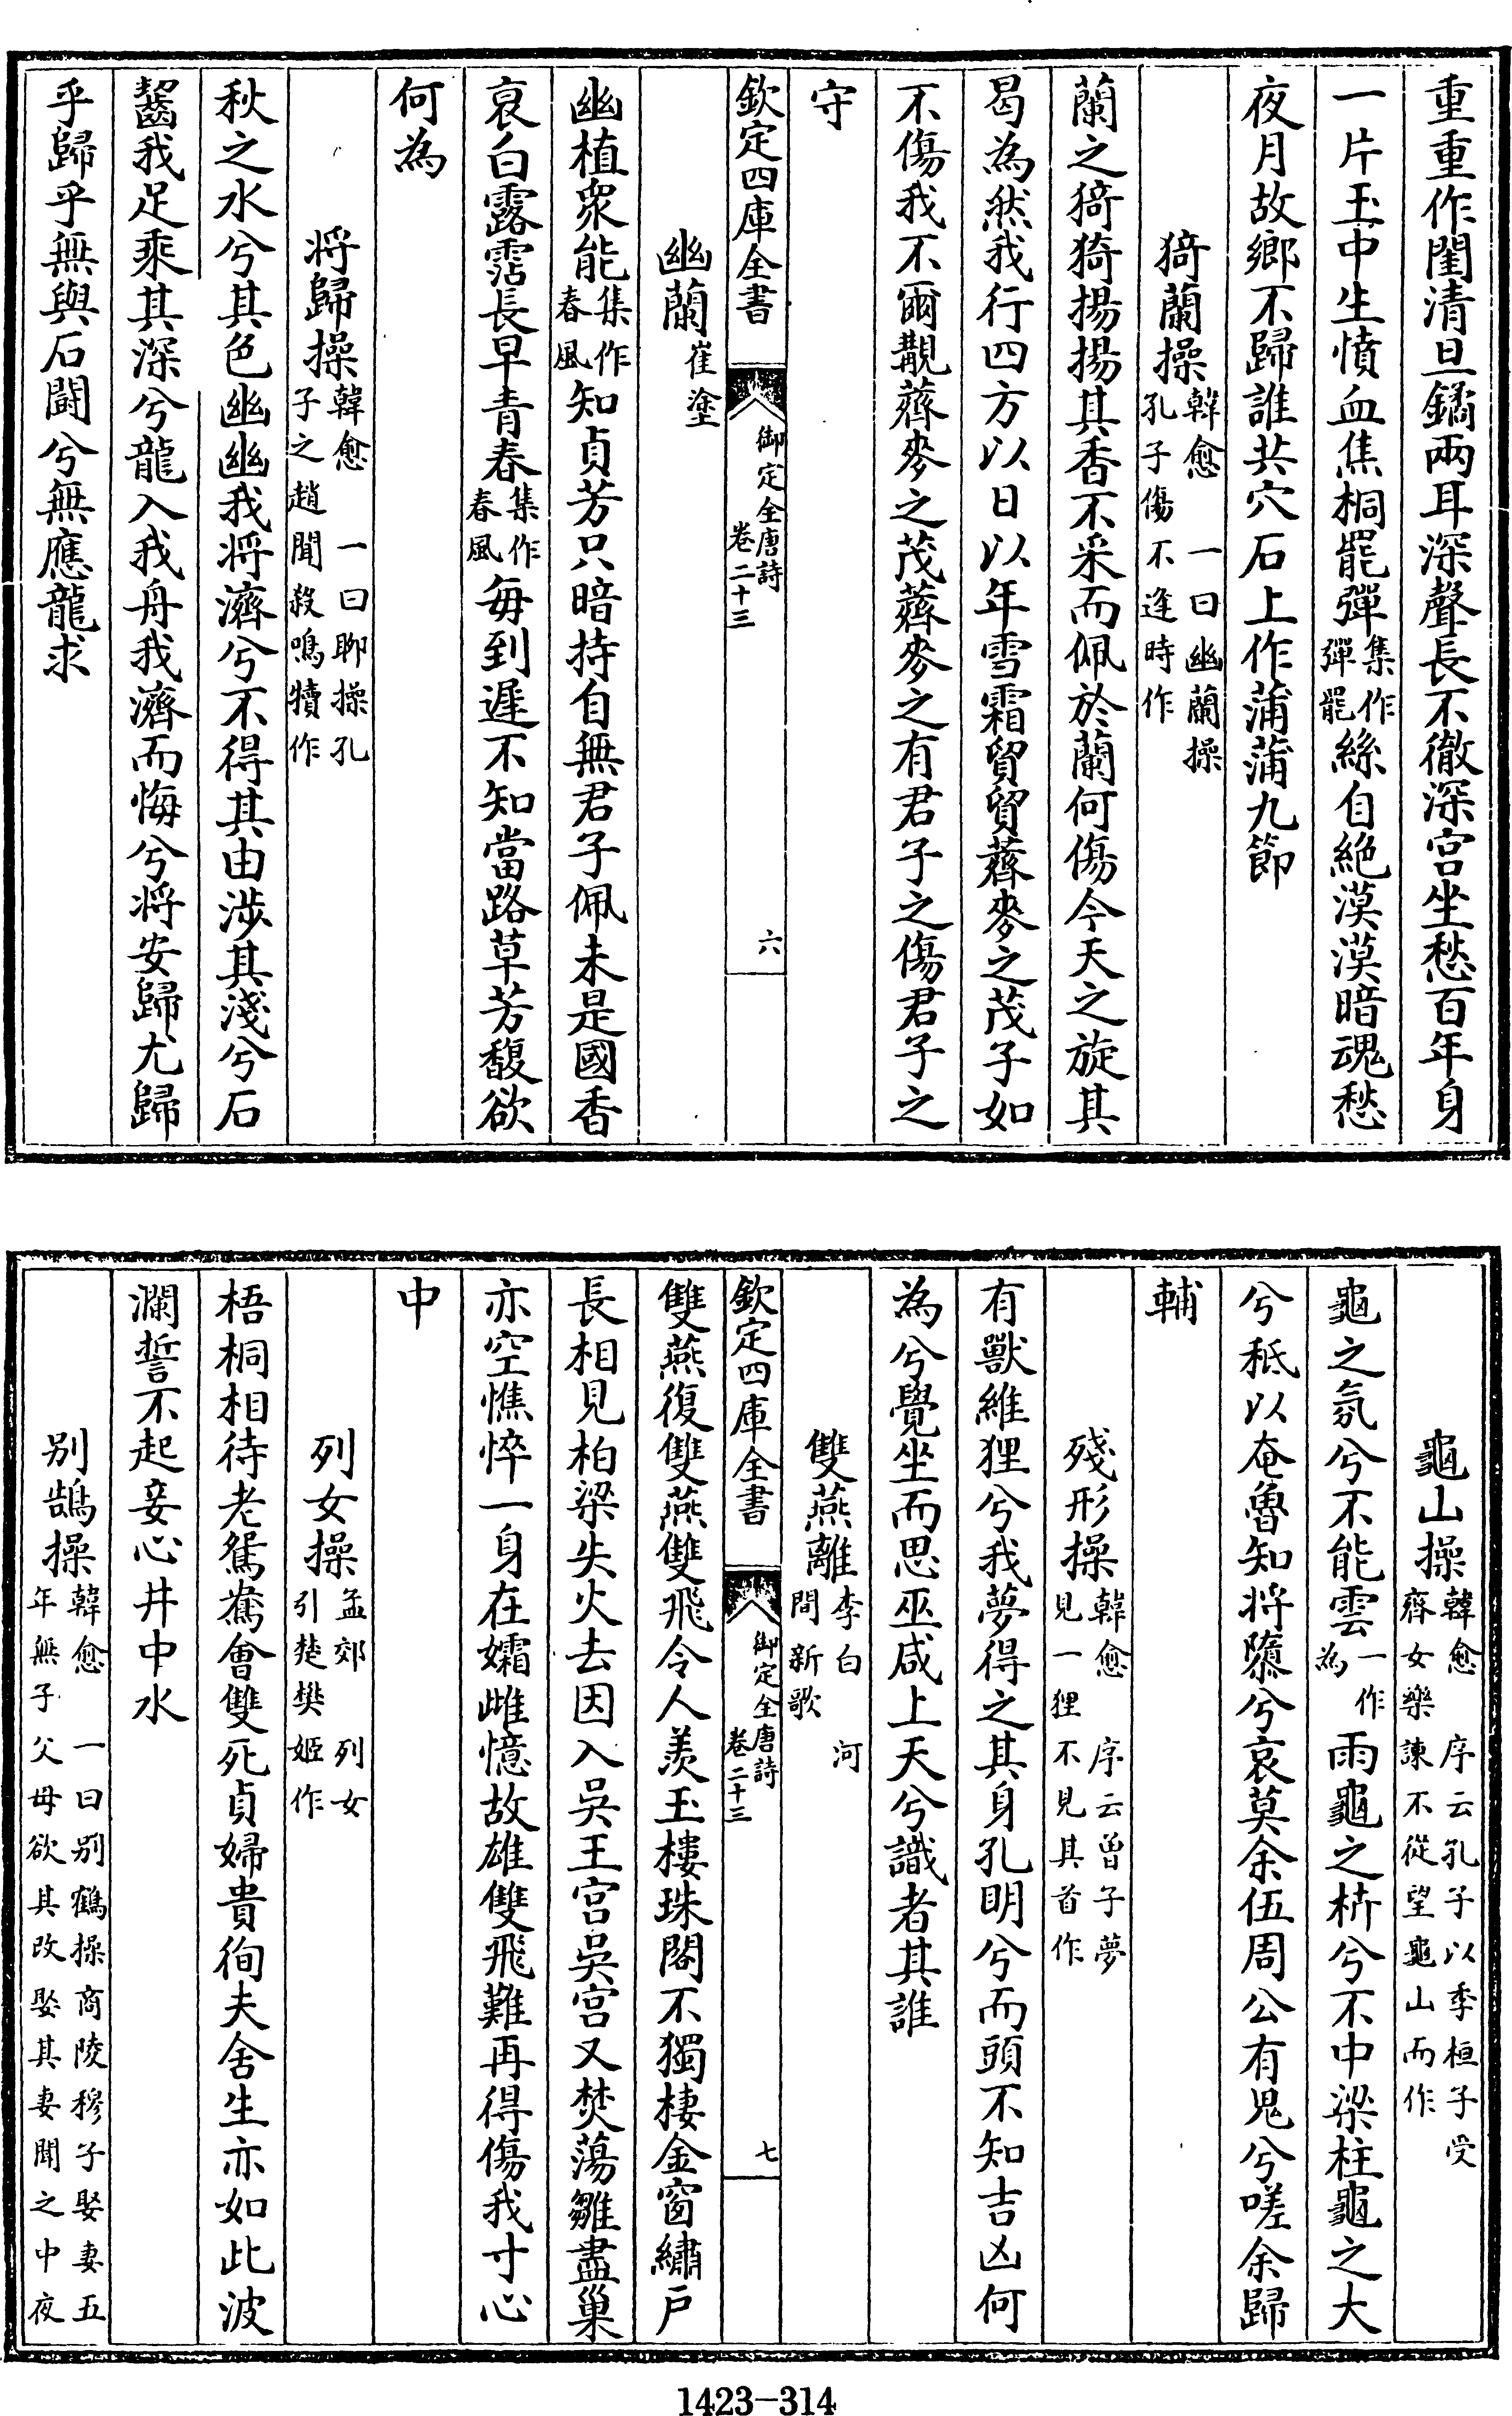 重重作閨清旦鐍兩耳深聲長不徹深宫坐愁百年身
一片玉中生憤血焦桐罷彈集作彈罷絲自絶漠漠暗魂愁
夜月故鄉不歸誰共穴石上作蒲蒲九節
猗蘭操韓愈 一曰幽蘭操孔子傷不逢時作
蘭之猗猗揚揚其香不采而佩於蘭何傷今天之旋其
曷為然我行四方以日以年雪霜貿貿薺麥之茂子如
不傷我不爾覯薺麥之茂薺麥之有君子之傷君子之
守
欽定四庫全書 御定全唐詩卷二十三 六
幽蘭崔塗
幽植衆能集作春風知貞芳只暗持自無君子佩未是國香
衰白露霑長早青春集作春風每到遲不知當路草芳馥欲
何為
将歸操韓愈 一曰聊操孔子之趙聞殺鳴犢作
秋之水兮其色幽幽我将濟兮不得其由涉其淺兮石
齧我足乘其深兮龍入我舟我濟而悔兮将安歸尤歸
乎歸乎無與石鬬兮無應龍求
龜山操韓愈 序云孔子以季桓子受齊女樂諫不從望龜山而作
龜之氛兮不能雲一作為雨龜之枿兮不中梁柱龜之大
兮秪以奄魯知将隳兮哀莫余伍周公有鬼兮嗟余歸
輔
殘形操韓愈 序云曾子夢見一狸不見其首作
有獸維狸兮我夢得之其身孔明兮而頭不知吉凶何
為兮覺坐而思巫咸上天兮識者其誰
雙燕離李白 河間新歌
欽定四庫全書 御定全唐詩卷二十三 七
雙燕復雙燕雙飛令人羨玉樓珠閣不獨棲金窗繡户
長相見柏梁失火去因入吳王宫吳宫又焚蕩雛盡巢
亦空憔悴一身在孀雌憶故雄雙飛難再得傷我寸心
中
列女操孟郊 列女引楚樊姬作
梧桐相待老鴛鴦會雙死貞婦貴徇夫舍生亦如此波
瀾誓不起妾心井中水
别鵠操韓愈 一曰别鶴操商陵穆子娶妻五年無子父母欲其改娶其妻聞之中夜
1423-314